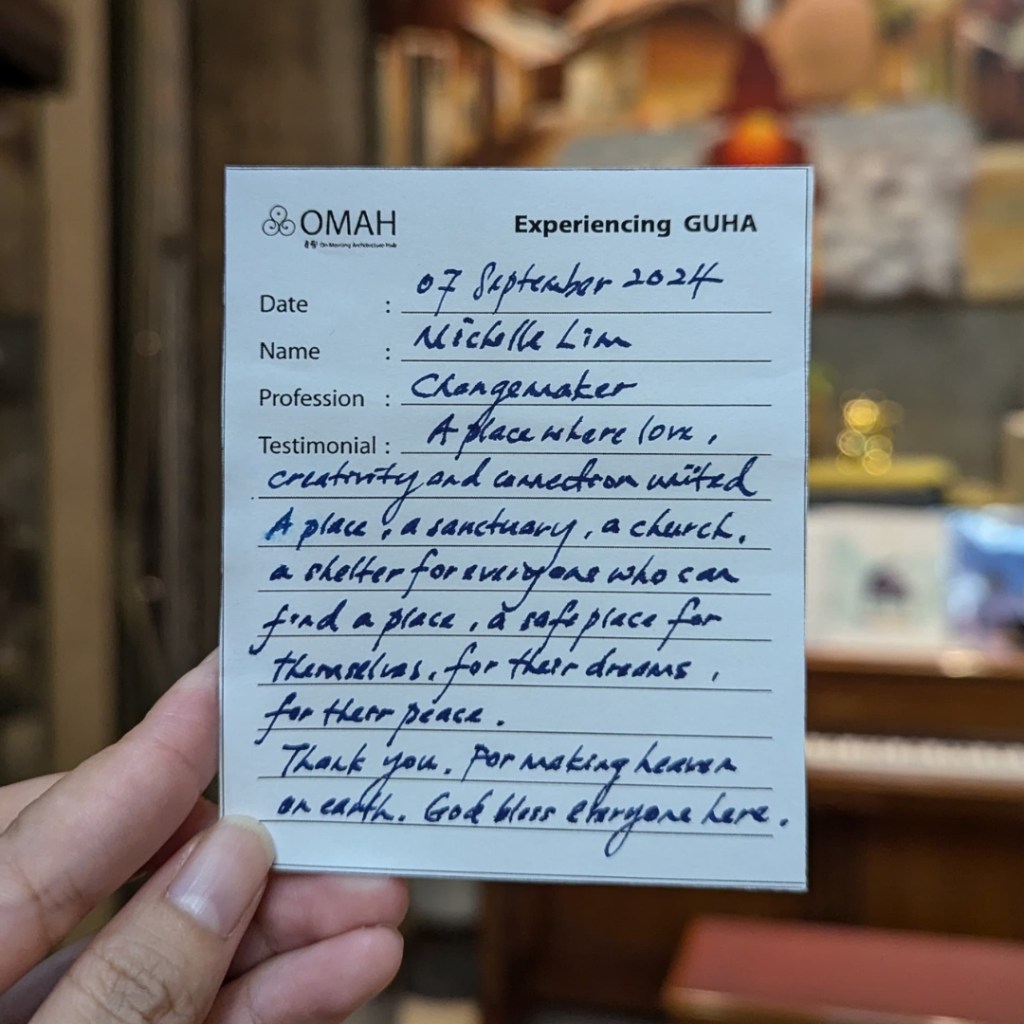 OMAH
Experiencing GUHA
On Morning Architecture Hub
Date : 07 September 2024
Name : Michelle Lim
Profession : Changemaker
Testimonial : A place where love,
creativity and connection united
A place, a sanctuary, a church,
a shelter for everyone who can
find a place, a safe place for
themselves, for their dreams,
for their peace.
Thank you. For making heaven
on earth. God bless everyone here.